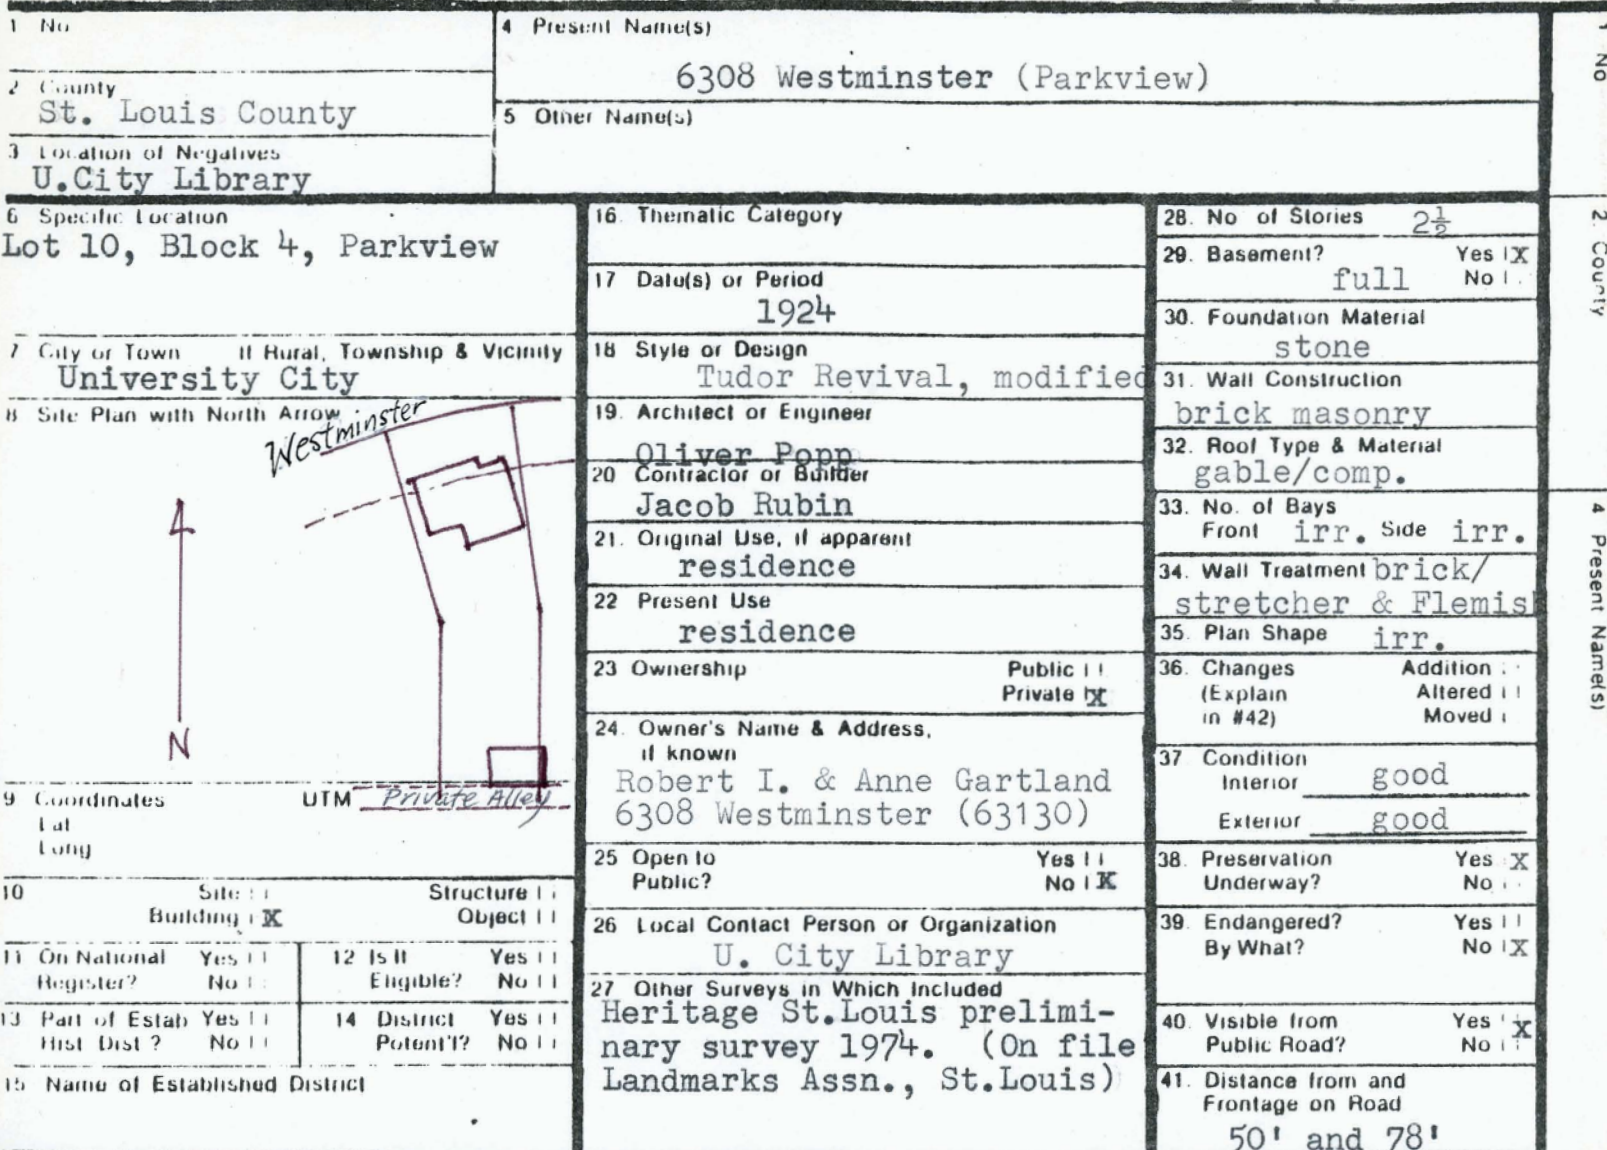 1 No
4 Present Name(s)
6308 Westminster (Parkview)
2 County
St. Louis County
5 Other Name(s)
3 Location of Negatives
U.City Library
6 Specific Location
Lot 10, Block 4, Parkview
7 City or Town If Rural, Township & Vicinity
University City
8 Site Plan with North Arrow
Westminster
N
Private Alley
9 Coordinates UTM
Lat
Long
10 Site Structure
Building X Object
11 On National Yes
Register? No
12 Is It Yes
Eligible? No
13 Part of Estab Yes
Hist Dist ? No
14 District Yes
Potent'l? No
15 Name of Established District
16. Thematic Category
17 Date(s) or Period
1924
18 Style or Design
Tudor Revival, modified
19. Architect or Engineer
Oliver Popp
20 Contractor or Builder
Jacob Rubin
21. Original Use, if apparent
residence
22 Present Use
residence
23 Ownership Public
Private X
24. Owner's Name & Address,
if known
Robert I. & Anne Gartland
6308 Westminster (63130)
25 Open to Yes
Public? No X
26 Local Contact Person or Organization
U. City Library
27 Other Surveys in Which Included
Heritage St.Louis prelimi-
nary survey 1974. (On file
Landmarks Assn., St.Louis)
28. No of Stories 2½
29. Basement? Yes X
full No
30. Foundation Material
stone
31. Wall Construction
brick masonry
32. Roof Type & Material
gable/comp.
33. No. of Bays
Front irr. Side irr.
34. Wall Treatment brick/
stretcher & Flemish
35. Plan Shape irr.
36. Changes Addition
(Explain Altered
in #42) Moved
37 Condition
Interior good
Exterior good
38. Preservation Yes X
Underway? No
39. Endangered? Yes
By What? No X
40. Visible from Yes X
Public Road? No
41. Distance from and
Frontage on Road
50' and 78'
1 No
2. County
4 Present Name(s)